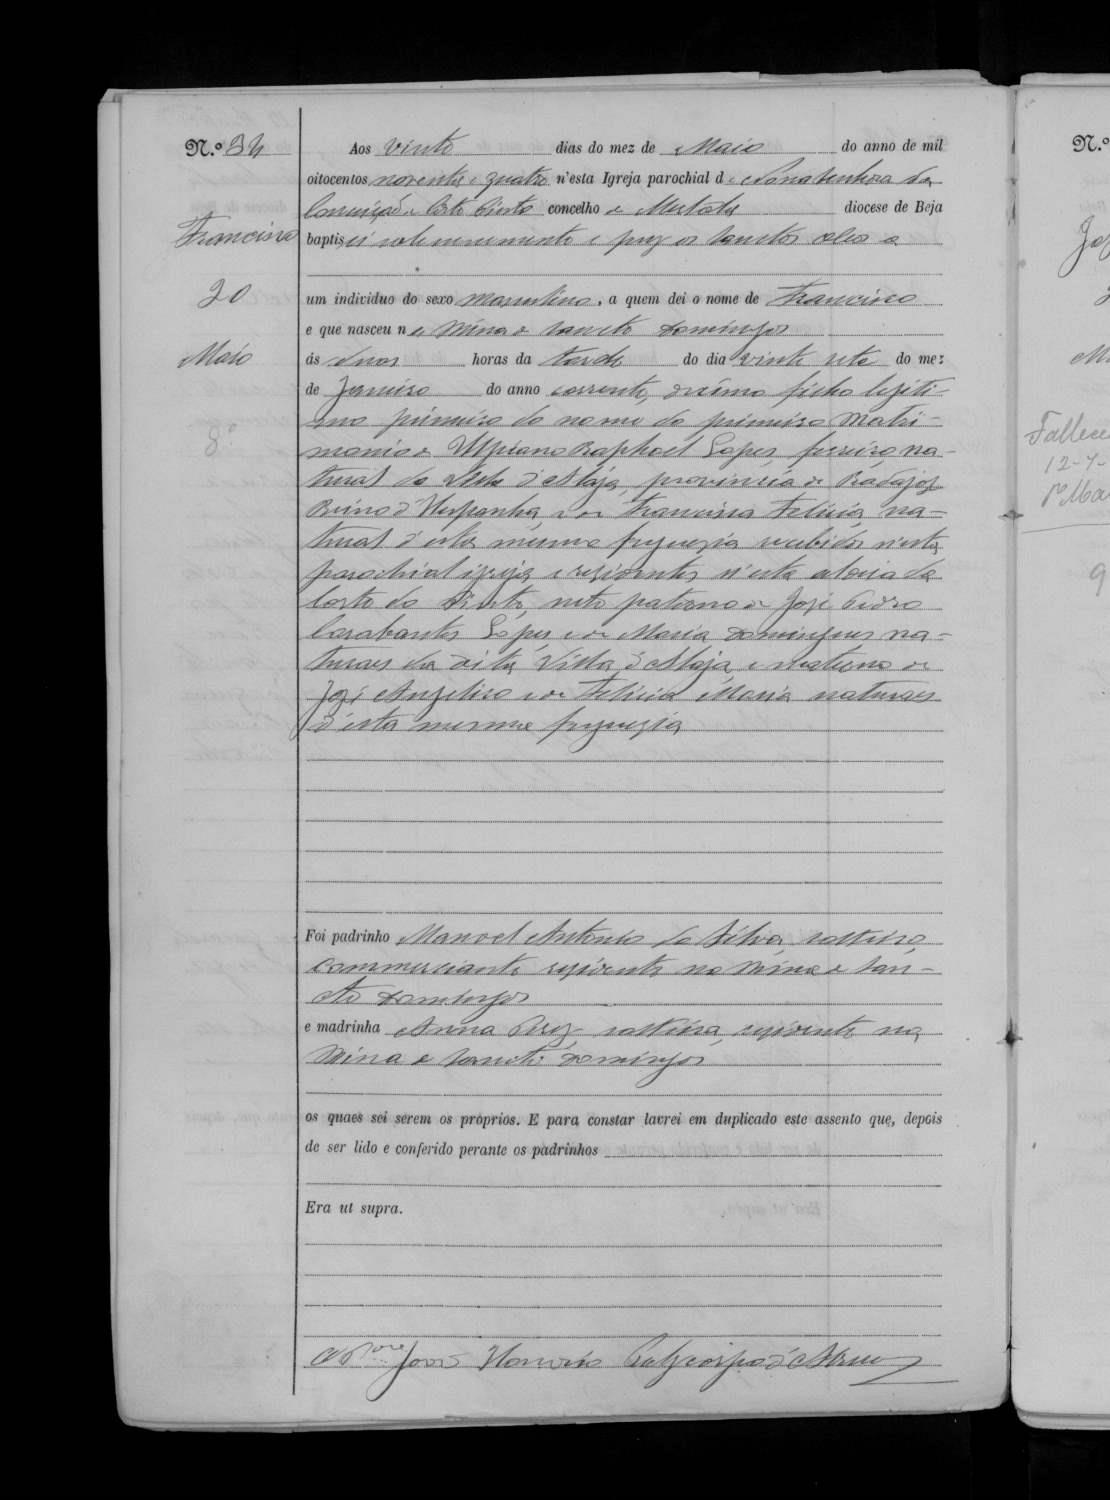 N.º 34
Aos vinte dias do mez de Maio do anno de mil
oitocentos noventa e quatro n'esta Igreja parochial de Nossa Senhora da
Conceição de Corte Pinto concelho de Mertola diocese de Beja
Francisco
baptisei solemnemente e puz os sanctos oleos a
20
um individuo do sexo masculino, a quem dei o nome de Francisco
e que nasceu na Mina de Sancto Domingos
Maio
ás duas horas da tarde do dia vinte sete do mez
de Janeiro do anno corrente, decimo filho legiti-
mo primeiro do nome do primeiro matri-
8º
monio de Ulpiano Raphael Lopes, ferreiro, na-
tural da d'Aloja, provincia de Badajoz
Reino d'Hespanha, e de Francisca Felicia, na-
tural d'esta mesma freguezia recebidos n'esta
parochial igreja e residentes n'esta aldeia da
Corte do Pinto, neto paterno de José Pedro
Carabantes Lopes e de Maria Domingues na-
turaes da dita Villa d'Aloja, e materno de
José Angelino e de Felicia Maria naturaes
d'esta mesma freguezia
Foi padrinho Manoel Antonio da Silva, solteiro,
commerciante residente na Mina de San-
cto Domingos
e madrinha Anna Perez, solteira, residente na
Mina de Sancto Domingos
os quaes sei serem os proprios. E para constar lavrei em duplicado este assento que, depois
de ser lido e conferido perante os padrinhos
Era ut supra.
José
N.º
Fallece
12-4-
9